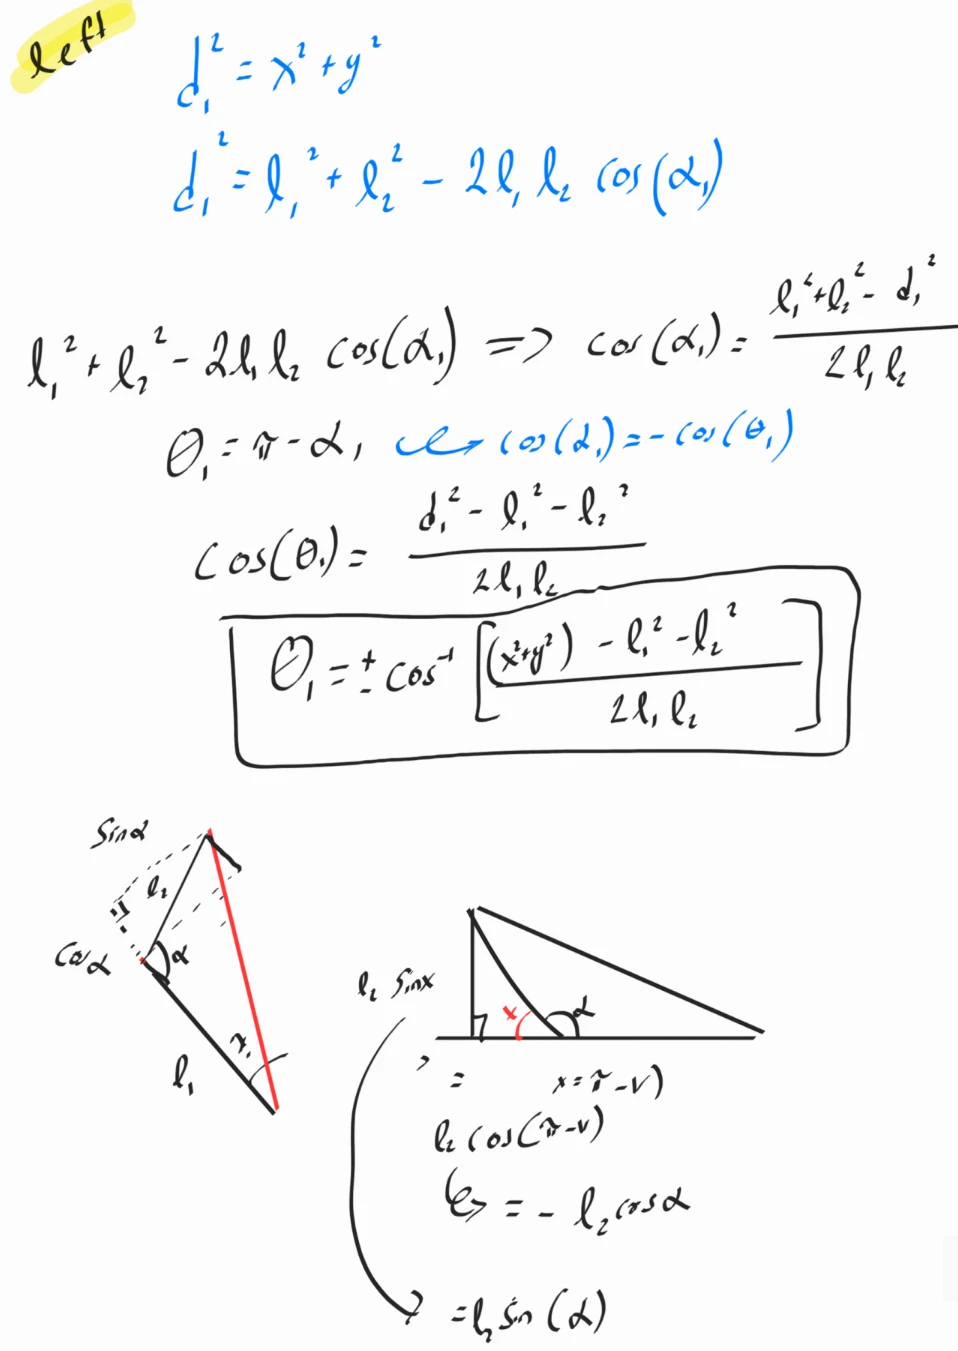 left
d₁² = x² + y²
d₁² = l₁² + l₂² - 2l₁ l₂ cos(α₁)
l₁² + l₂² - 2l₁ l₂ cos(α₁) => cos(α₁) = (l₁² + l₂² - d₁²) / (2l₁ l₂)
θ₁ = π - α₁ ↪ cos(α₁) = -cos(θ₁)
cos(θ₁) = (d₁² - l₁² - l₂²) / (2l₁ l₂)
θ₁ = ± cos⁻¹ [((x²+y²) - l₁² - l₂²) / (2l₁ l₂)]
sinα
l₂
cosα
α
l₁
l₂ sinx
x
α
= x = π - v)
l₂ cos(π-v)
↪ = - l₂ cosα
= l₂ sin(α)